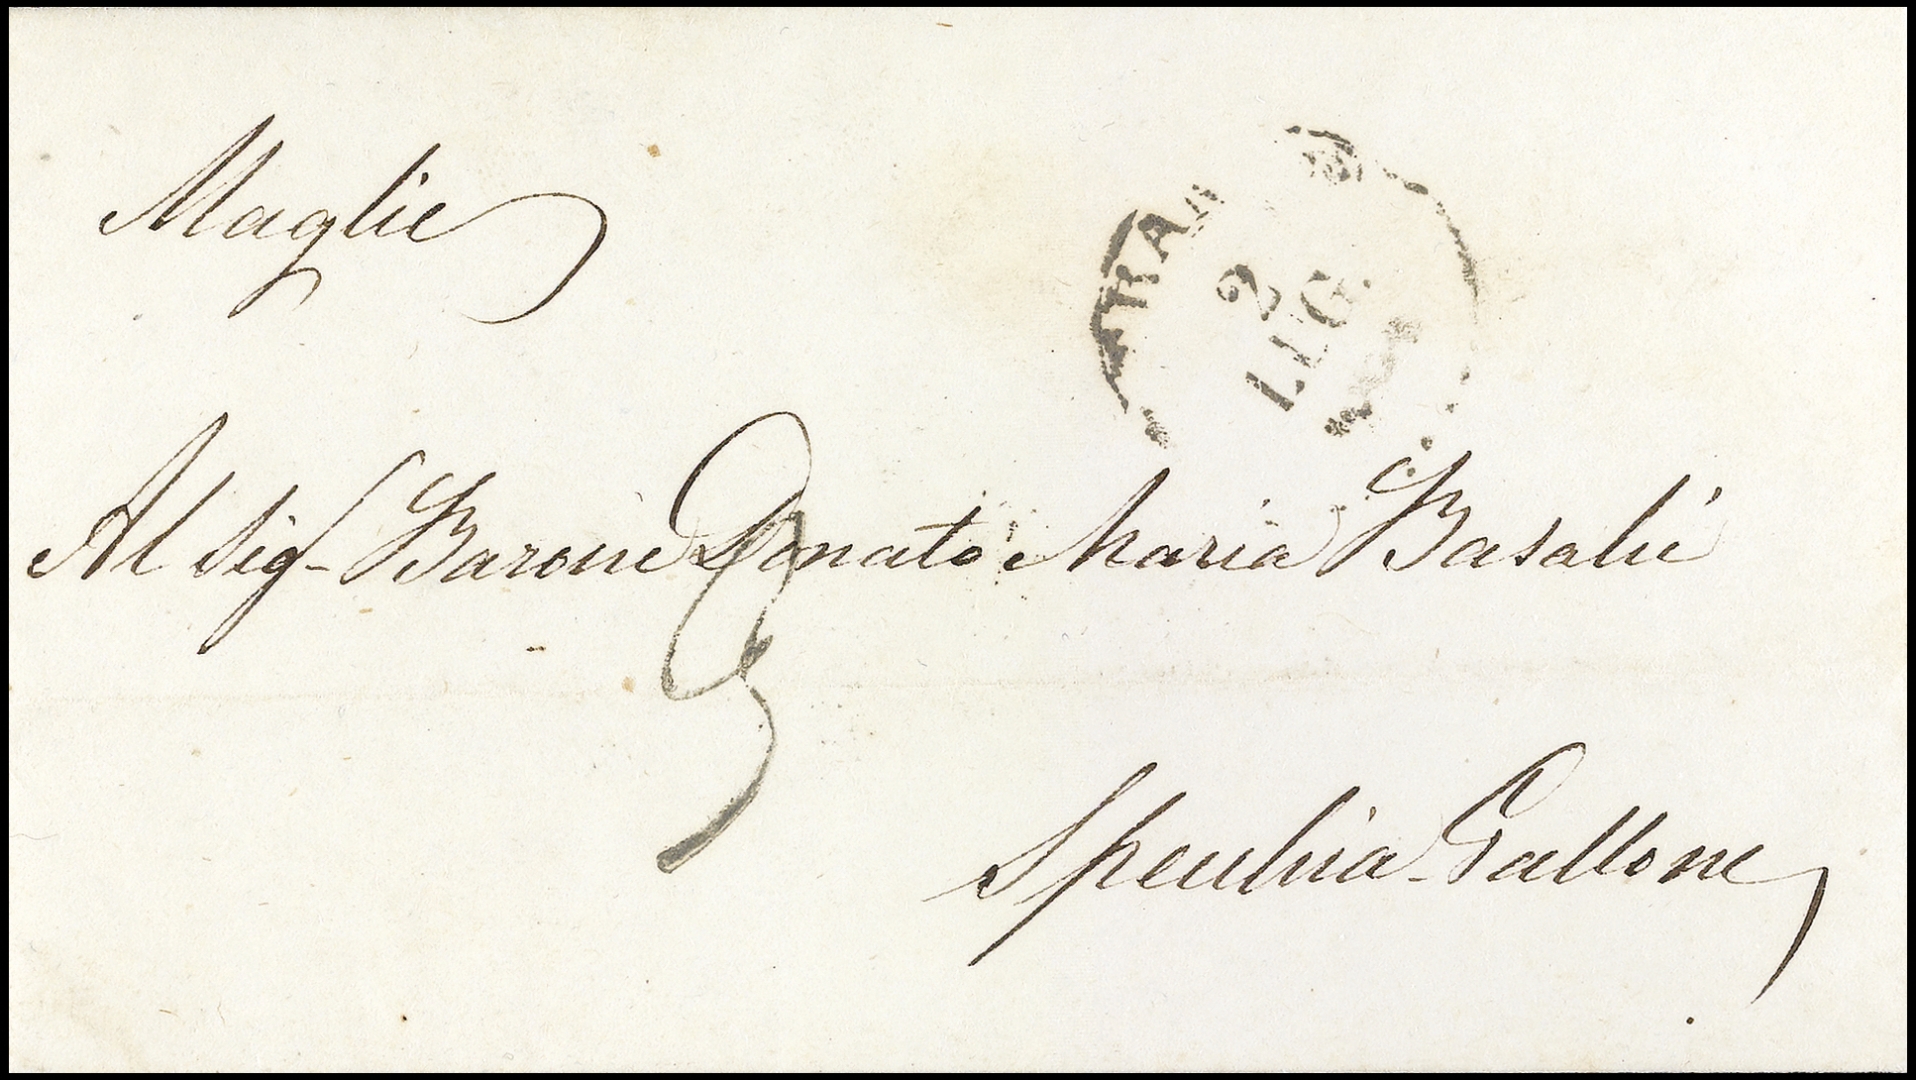 Maglie
2
LUG.
Al Sig. Barone Donato Maria Basalù
Specchia-Gallone